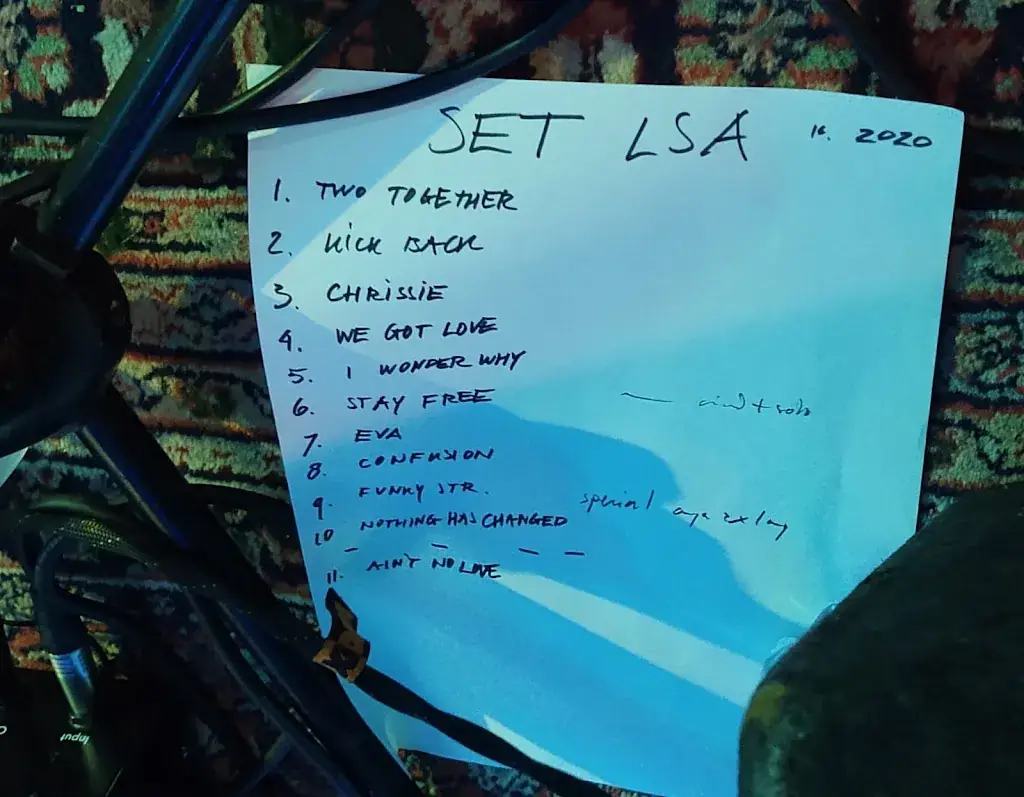 SET LSA 2020
1. TWO TOGETHER
2. KICK BACK
3. CHRISSIE
4. WE GOT LOVE
5. I WONDER WHY
6. STAY FREE
7. EVA
8. CONFUSION
9. FUNKY STR.
special
10 NOTHING HAS CHANGED
11. AIN'T NO LOVE
Input